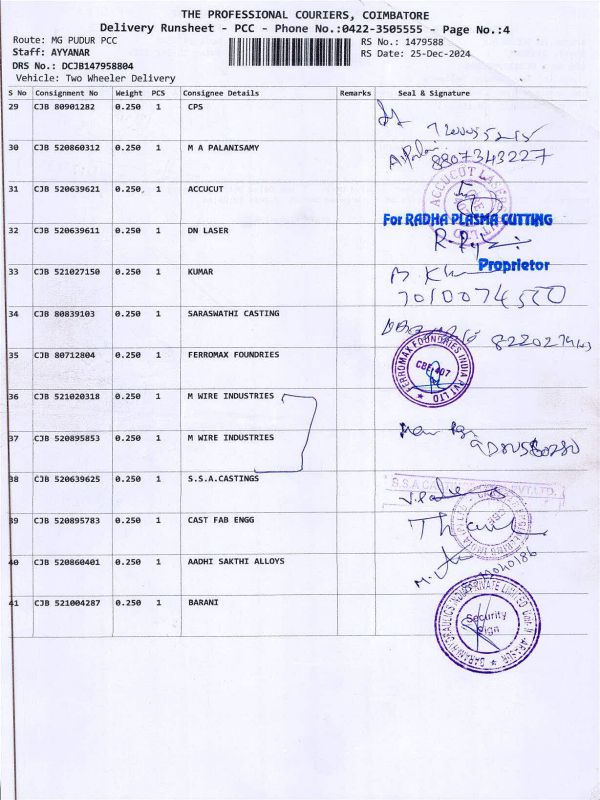 THE PROFESSIONAL COURIERS, COIMBATORE
Delivery Runsheet - PCC - Phone No.:0422-3505555 - Page No.:4
Route: MG PUDUR PCC
RS No.: 1479588
Staff: AYYANAR
RS Date: 25-Dec-2024
DRS No.: DCJB147958804
Vehicle: Two Wheeler Delivery
S No Consignment No Weight PCS Consignee Details Remarks Seal & Signature
29 CJB 80901282 0.250 1 CPS
30 CJB 520860312 0.250 1 M A PALANISAMY
8807343227
31 CJB 520639621 0.250 1 ACCUCUT
For RADHA PLASMA CUTTING
32 CJB 520639611 0.250 1 DN LASER
Proprietor
33 CJB 521027150 0.250 1 KUMAR
34 CJB 80839103 0.250 1 SARASWATHI CASTING
35 CJB 80712804 0.250 1 FERROMAX FOUNDRIES
FERROMAX FOUNDRIES INDIA PVT LTD
CBE-407
36 CJB 521020318 0.250 1 M WIRE INDUSTRIES
37 CJB 520895853 0.250 1 M WIRE INDUSTRIES
38 CJB 520639625 0.250 1 S.S.A.CASTINGS
39 CJB 520895783 0.250 1 CAST FAB ENGG
40 CJB 520860401 0.250 1 AADHI SAKTHI ALLOYS
41 CJB 521004287 0.250 1 BARANI
Security
Sign